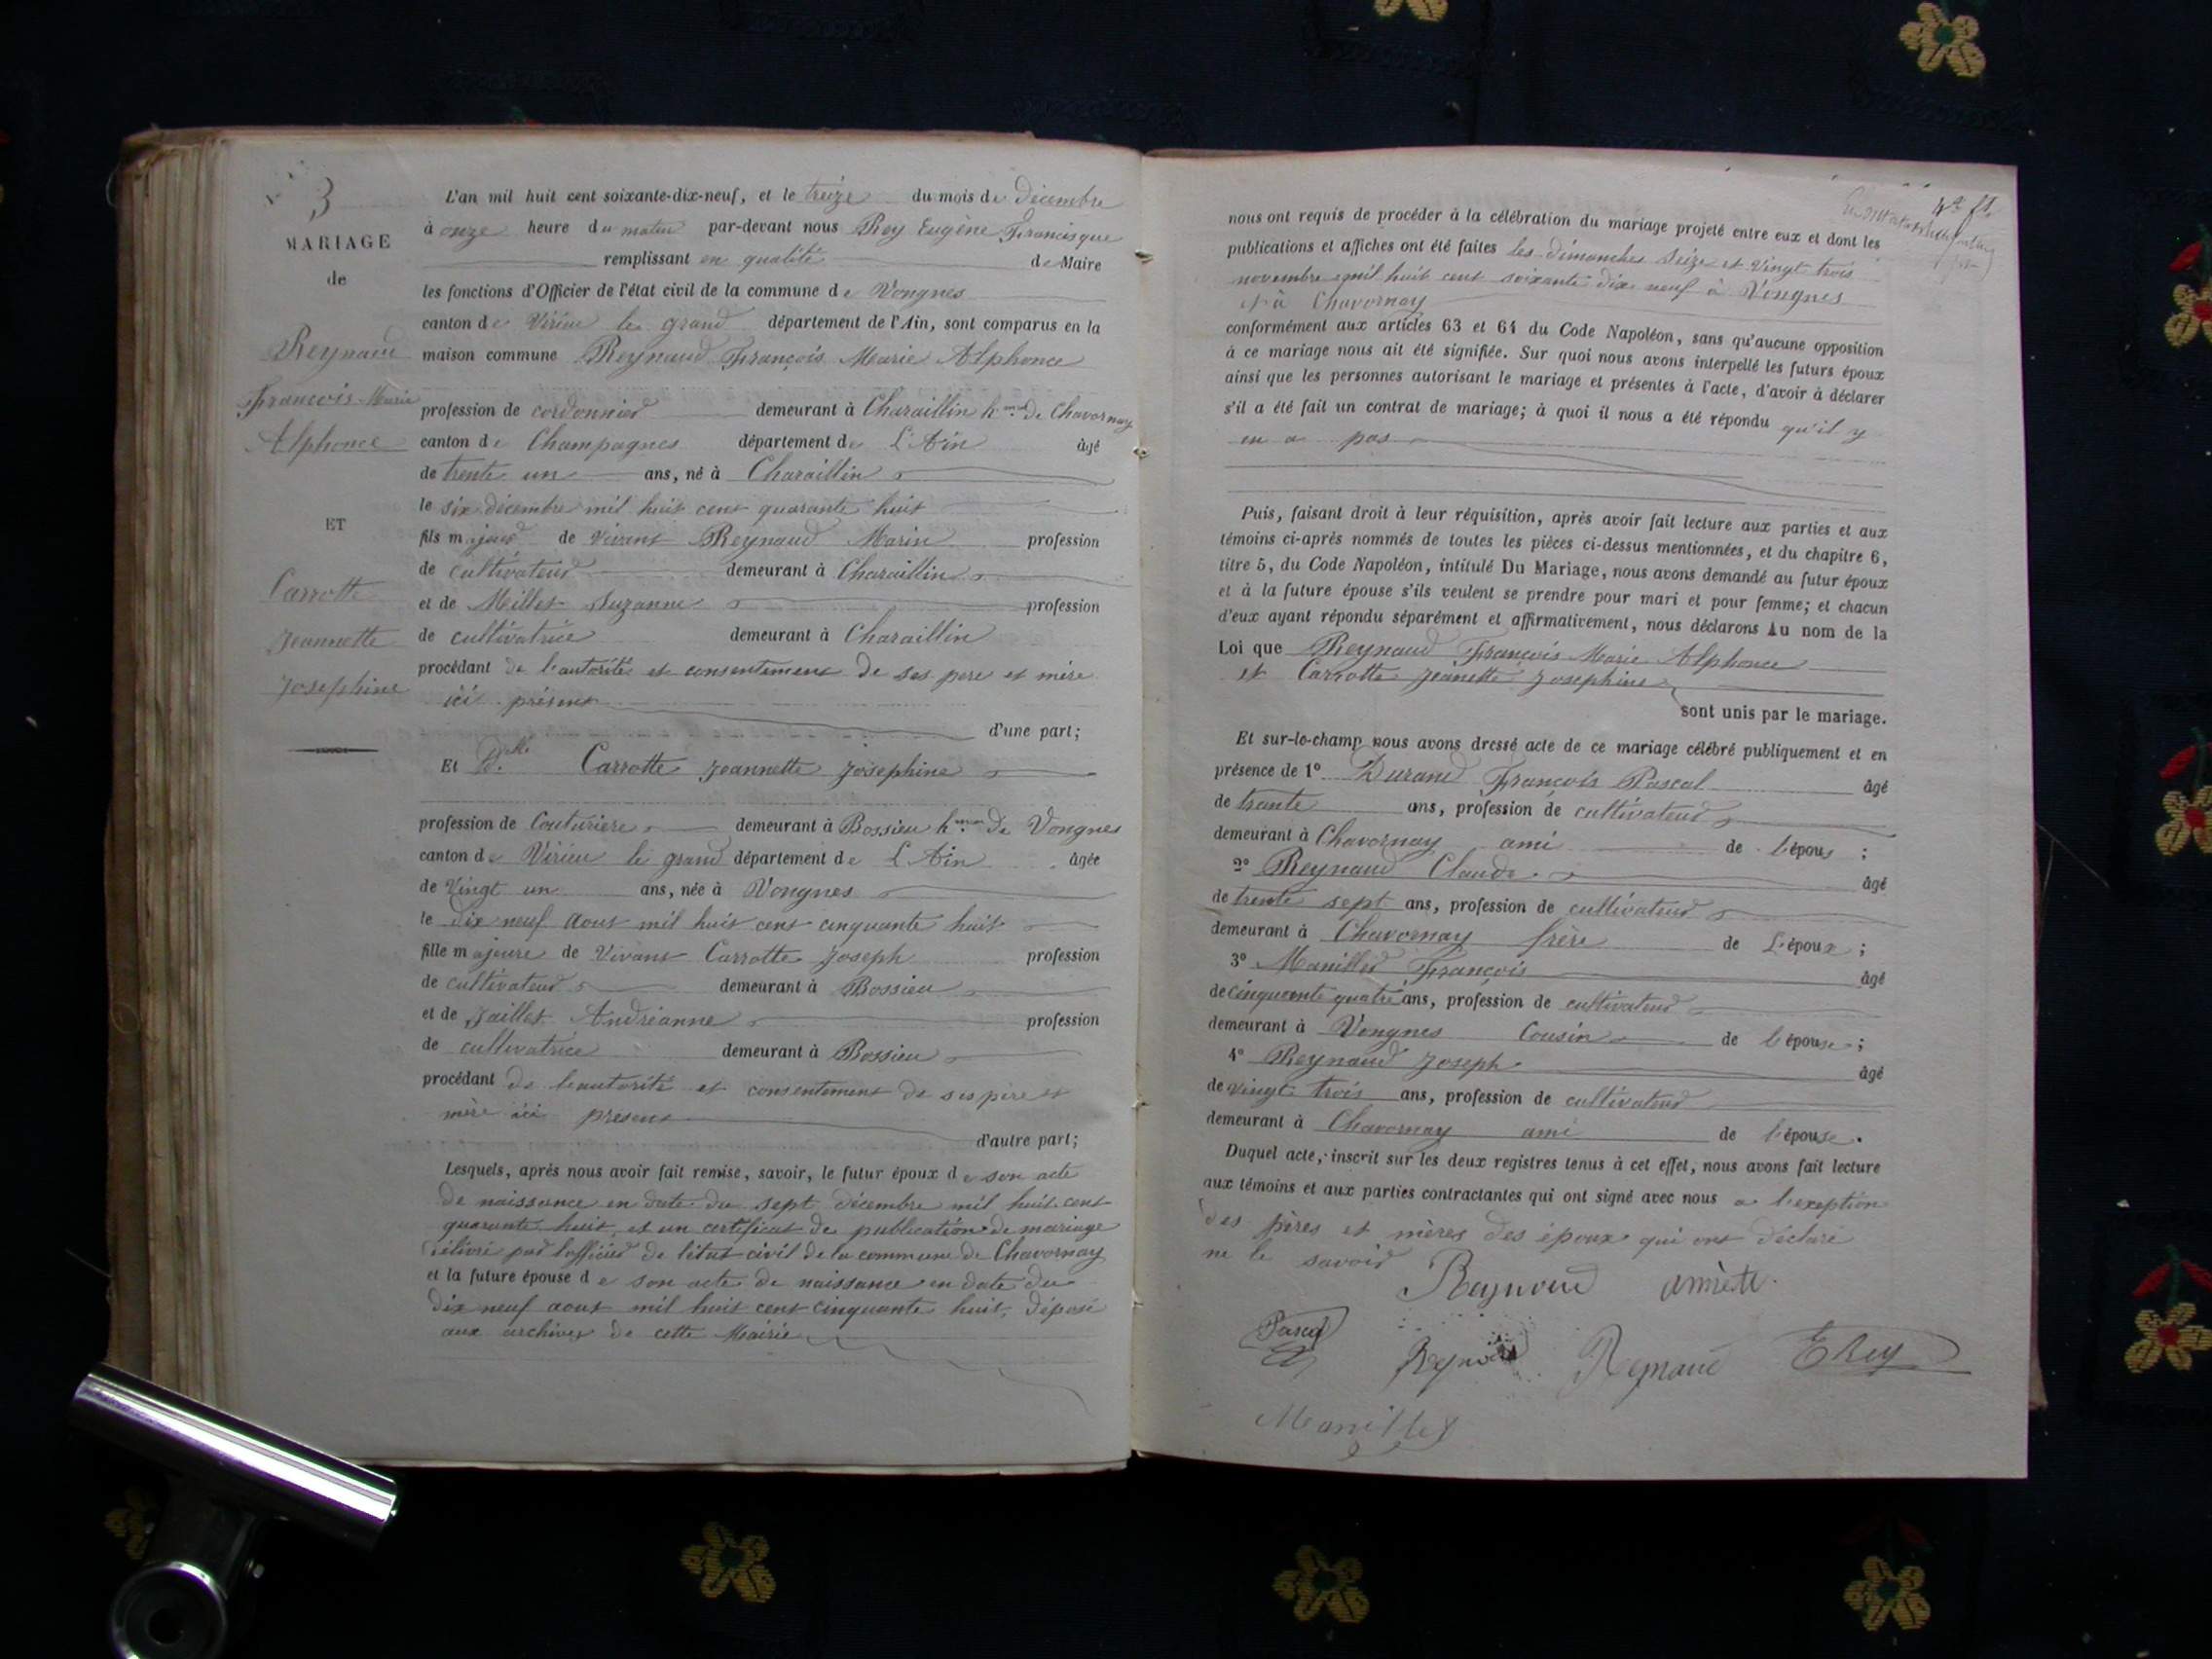 3
MARIAGE
de
Reynaud
François-Marie
Alphonce
ET
Carrotte
Jeannette
Josephine
L'an mil huit cent soixante-dix-neuf, et le treize du mois de Décembre
à onze heure du matin par-devant nous Rey Eugène Francisque
remplissant en qualité de Maire
les fonctions d'Officier de l'état civil de la commune de Vongnes
canton de Virieu le grand département de l'Ain, sont comparus en la
maison commune Reynaud François Marie Alphonce
profession de cordonnier demeurant à Charaillin h.au de Chavornay
canton de Champagnes département de L'Ain âgé
de trente un ans, né à Charaillin
le six décembre mil huit cent quarante huit
fils majeur de vivant Reynaud Marin profession
de cultivateur demeurant à Charaillin
et de Millet Suzanne profession
de cultivatrice demeurant à Charaillin
procédant de l'autorité et consentement de ses pere et mère
ici présent
d'une part;
Et D.elle Carrotte Jeannette Josephine
profession de Couturiere demeurant à Bossieu h.au De Vongnes
canton de Virieu le grand département de L'Ain âgée
de Vingt un ans, née à Vongnes
le Dix neuf Aout mil huit cent cinquante huit
fille majeure de Vivant Carrotte Joseph profession
de cultivateur demeurant à Bossieu
et de Jaillet Andréanne profession
de cultivatrice demeurant à Bossieu
procédant de l'autorité et consentement de ses père et
mère ici present
d'autre part;
Lesquels, après nous avoir fait remise, savoir, le futur époux de son acte
de naissance en date du sept décembre mil huit cent
quarante huit, et un certificat de publication de mariage
délivré par l'officier de l'état civil de la commune de Chavornay
et la future épouse de son acte de naissance en date du
dix neuf aout mil huit cent cinquante huit, déposé
aux archives de cette Mairie
nous ont requis de procéder à la célébration du mariage projeté entre eux et dont les
publications et affiches ont été faites les dimanches seize et vingt trois
novembre mil huit cent soixante dix neuf à Vongnes
et à Chavornay
conformément aux articles 63 et 64 du Code Napoléon, sans qu'aucune opposition
à ce mariage nous ait été signifiée. Sur quoi nous avons interpellé les futurs époux
ainsi que les personnes autorisant le mariage et présentes à l'acte, d'avoir à déclarer
s'il a été fait un contrat de mariage; à quoi il nous a été répondu qu'il y
en a pas
Puis, faisant droit à leur réquisition, après avoir fait lecture aux parties et aux
témoins ci-après nommés de toutes les pièces ci-dessus mentionnées, et du chapitre 6,
titre 5, du Code Napoléon, intitulé Du Mariage, nous avons demandé au futur époux
et à la future épouse s'ils veulent se prendre pour mari et pour femme; et chacun
d'eux ayant répondu séparément et affirmativement, nous déclarons Au nom de la
Loi que Reynaud François Marie Alphonce
et Carrotte Jeanette Josephine
sont unis par le mariage.
Et sur-le-champ nous avons dressé acte de ce mariage célébré publiquement et en
présence de 1° Durand François Pascal âgé
de trante ans, profession de cultivateur
demeurant à Chavornay ami de l'époux ;
2° Reynaud Claude âgé
de trente sept ans, profession de cultivateur
demeurant à Chavornay frère de L'époux ;
3° Manillier François âgé
de cinquante quatre ans, profession de cultivateur
demeurant à Vongnes Cousin de l'épouse ;
4° Reynaud Joseph âgé
de vingt trois ans, profession de cultivateur
demeurant à Chavornay ami de l'épouse.
Duquel acte, inscrit sur les deux registres tenus à cet effet, nous avons fait lecture
aux témoins et aux parties contractantes qui ont signé avec nous a l'exeption
des pères et mères des époux qui ont déclaré
ne le savoir
Reynaud
Pascal
Reynaud Reynaud E Rey